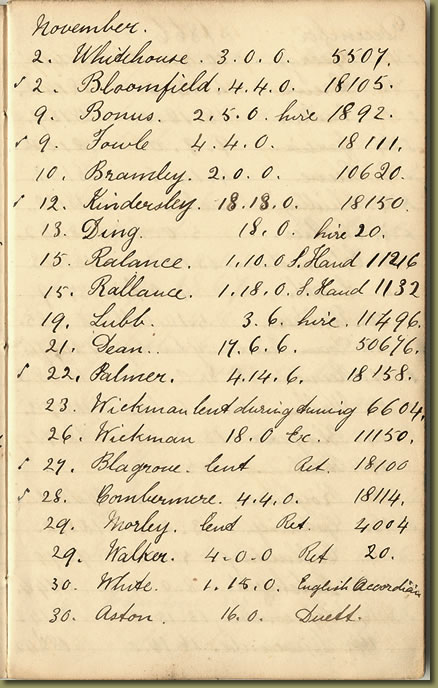 November.
2. Whitehouse. 3.0.0. 5507.
✓ 2. Bloomfield. 4.4.0. 18105.
9. Bonus. 2.5.0. hire 1892.
✓ 9. Fowle 4.4.0. 18111.
10. Bramley. 2.0.0. 10620.
✓ 12. Kindersley. 18.18.0. 18150.
13. Ding. 18.0. hire 20.
15. Ralance. 1.10.0 S. Hand 11216
15. Rallance. 1.18.0. S. Hand 1132
19. Lubb. 3.6. hire. 11496.
21. Dean.. 17.6.6. 50676.
✓ 22. Palmer. 4.14.6. 18158.
23. Wickman lent during tuning 6604.
26. Wickman 18.0 Ex. 11150.
✓ 27. Blagrove. lent Ret. 18100
✓ 28. Combermere. 4.4.0. 18114.
29. Morley. lent Ret. 4004
29. Walker. 4.0.0 Ret 20.
30. White. 1.15.0. English Accordian
30. Aston. 16.0. Duett.